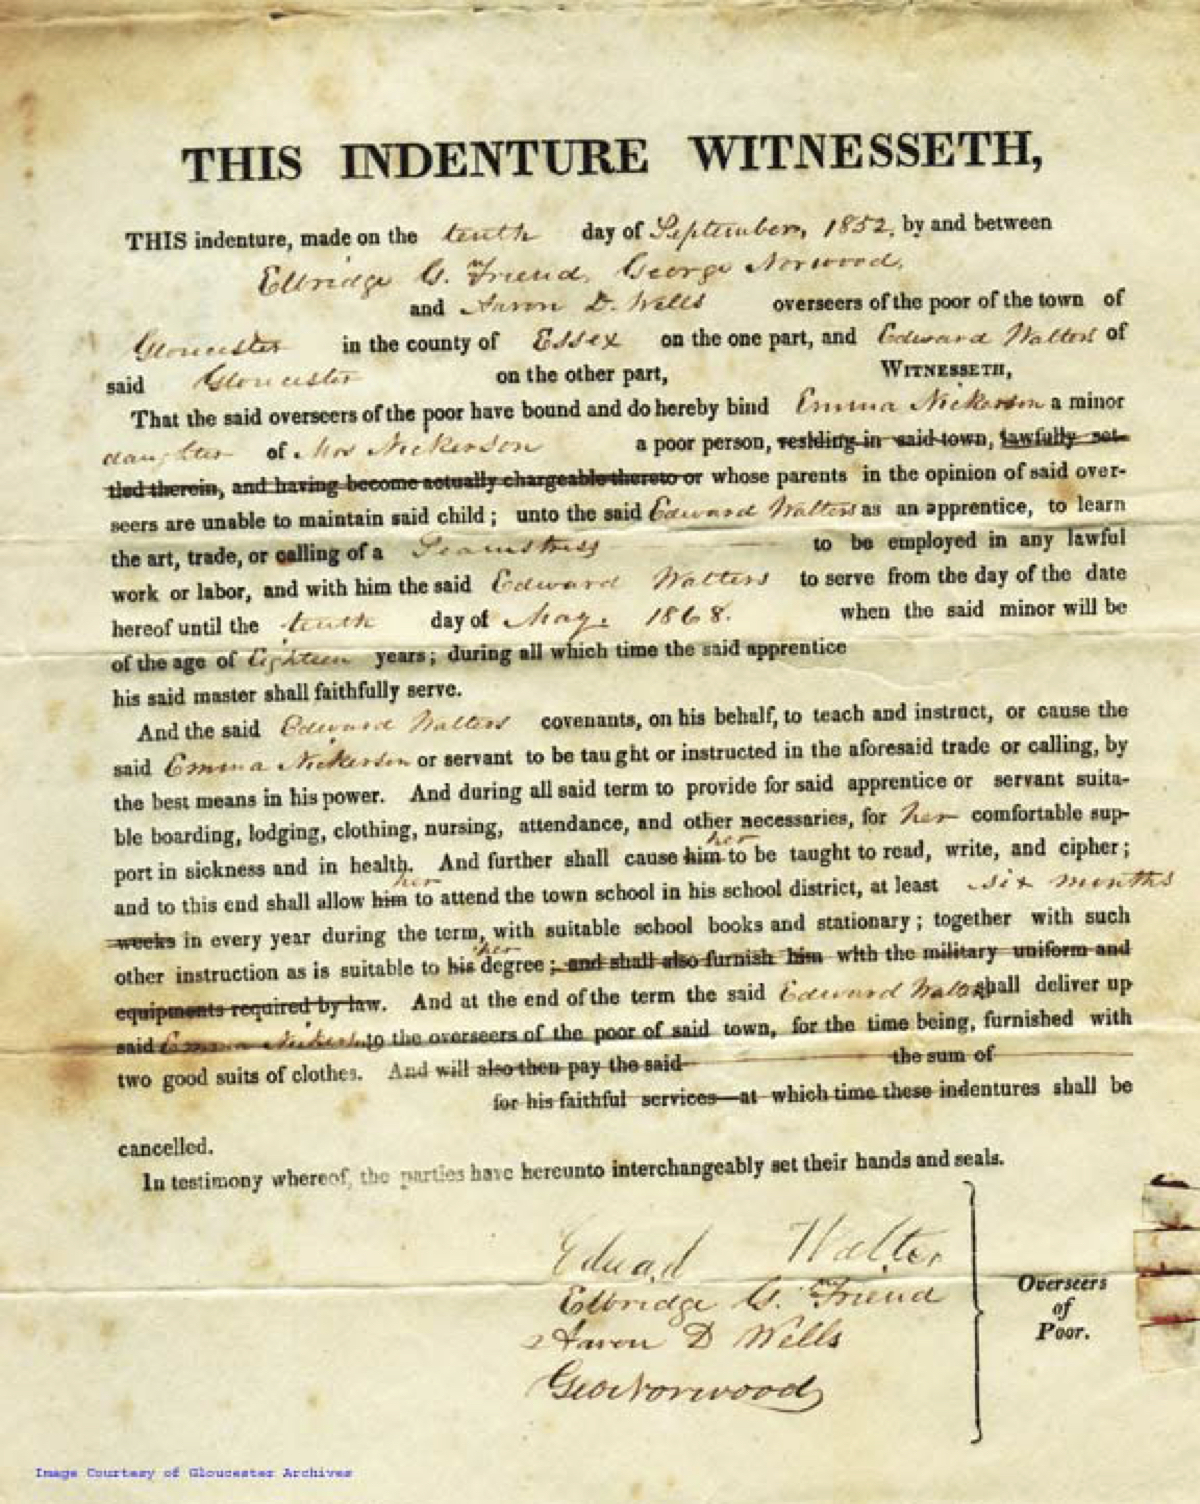 THIS INDENTURE WITNESSETH,
THIS indenture, made on the tenth day of September, 1852, by and between
Elbridge G. Friend, George Norwood,
and Aaron D. Wells overseers of the poor of the town of
Gloucester in the county of Essex on the one part, and Edward Walters of
said Gloucester on the other part, WITNESSETH,
That the said overseers of the poor have bound and do hereby bind Emma Nickerson a minor
daughter of Mrs Nickerson a poor person, residing in said town, lawfully set-
tled therein, and having become actually chargeable thereto or whose parents in the opinion of said over-
seers are unable to maintain said child; unto the said Edward Walters as an apprentice, to learn
the art, trade, or calling of a Seamstress to be employed in any lawful
work or labor, and with him the said Edward Walters to serve from the day of the date
hereof until the tenth day of May, 1868. when the said minor will be
of the age of Eighteen years; during all which time the said apprentice
his said master shall faithfully serve.
And the said Edward Walters covenants, on his behalf, to teach and instruct, or cause the
said Emma Nickerson or servant to be taught or instructed in the aforesaid trade or calling, by
the best means in his power. And during all said term to provide for said apprentice or servant suita-
ble boarding, lodging, clothing, nursing, attendance, and other necessaries, for her comfortable sup-
port in sickness and in health. And further shall cause him her to be taught to read, write, and cipher;
and to this end shall allow him her to attend the town school in his school district, at least six months
weeks in every year during the term, with suitable school books and stationary; together with such
other instruction as is suitable to his her degree; and shall also furnish him with the military uniform and
equipments required by law. And at the end of the term the said Edward Walters shall deliver up
said Emma Nickerson to the overseers of the poor of said town, for the time being, furnished with
two good suits of clothes. And will also then pay the said the sum of
for his faithful services—at which time these indentures shall be
cancelled.
In testimony whereof, the parties have hereunto interchangeably set their hands and seals.
Edward Walter
Elbridge G. Friend
Aaron D Wells
Geo Norwood
Overseers
of
Poor.
Image Courtesy of Gloucester Archives